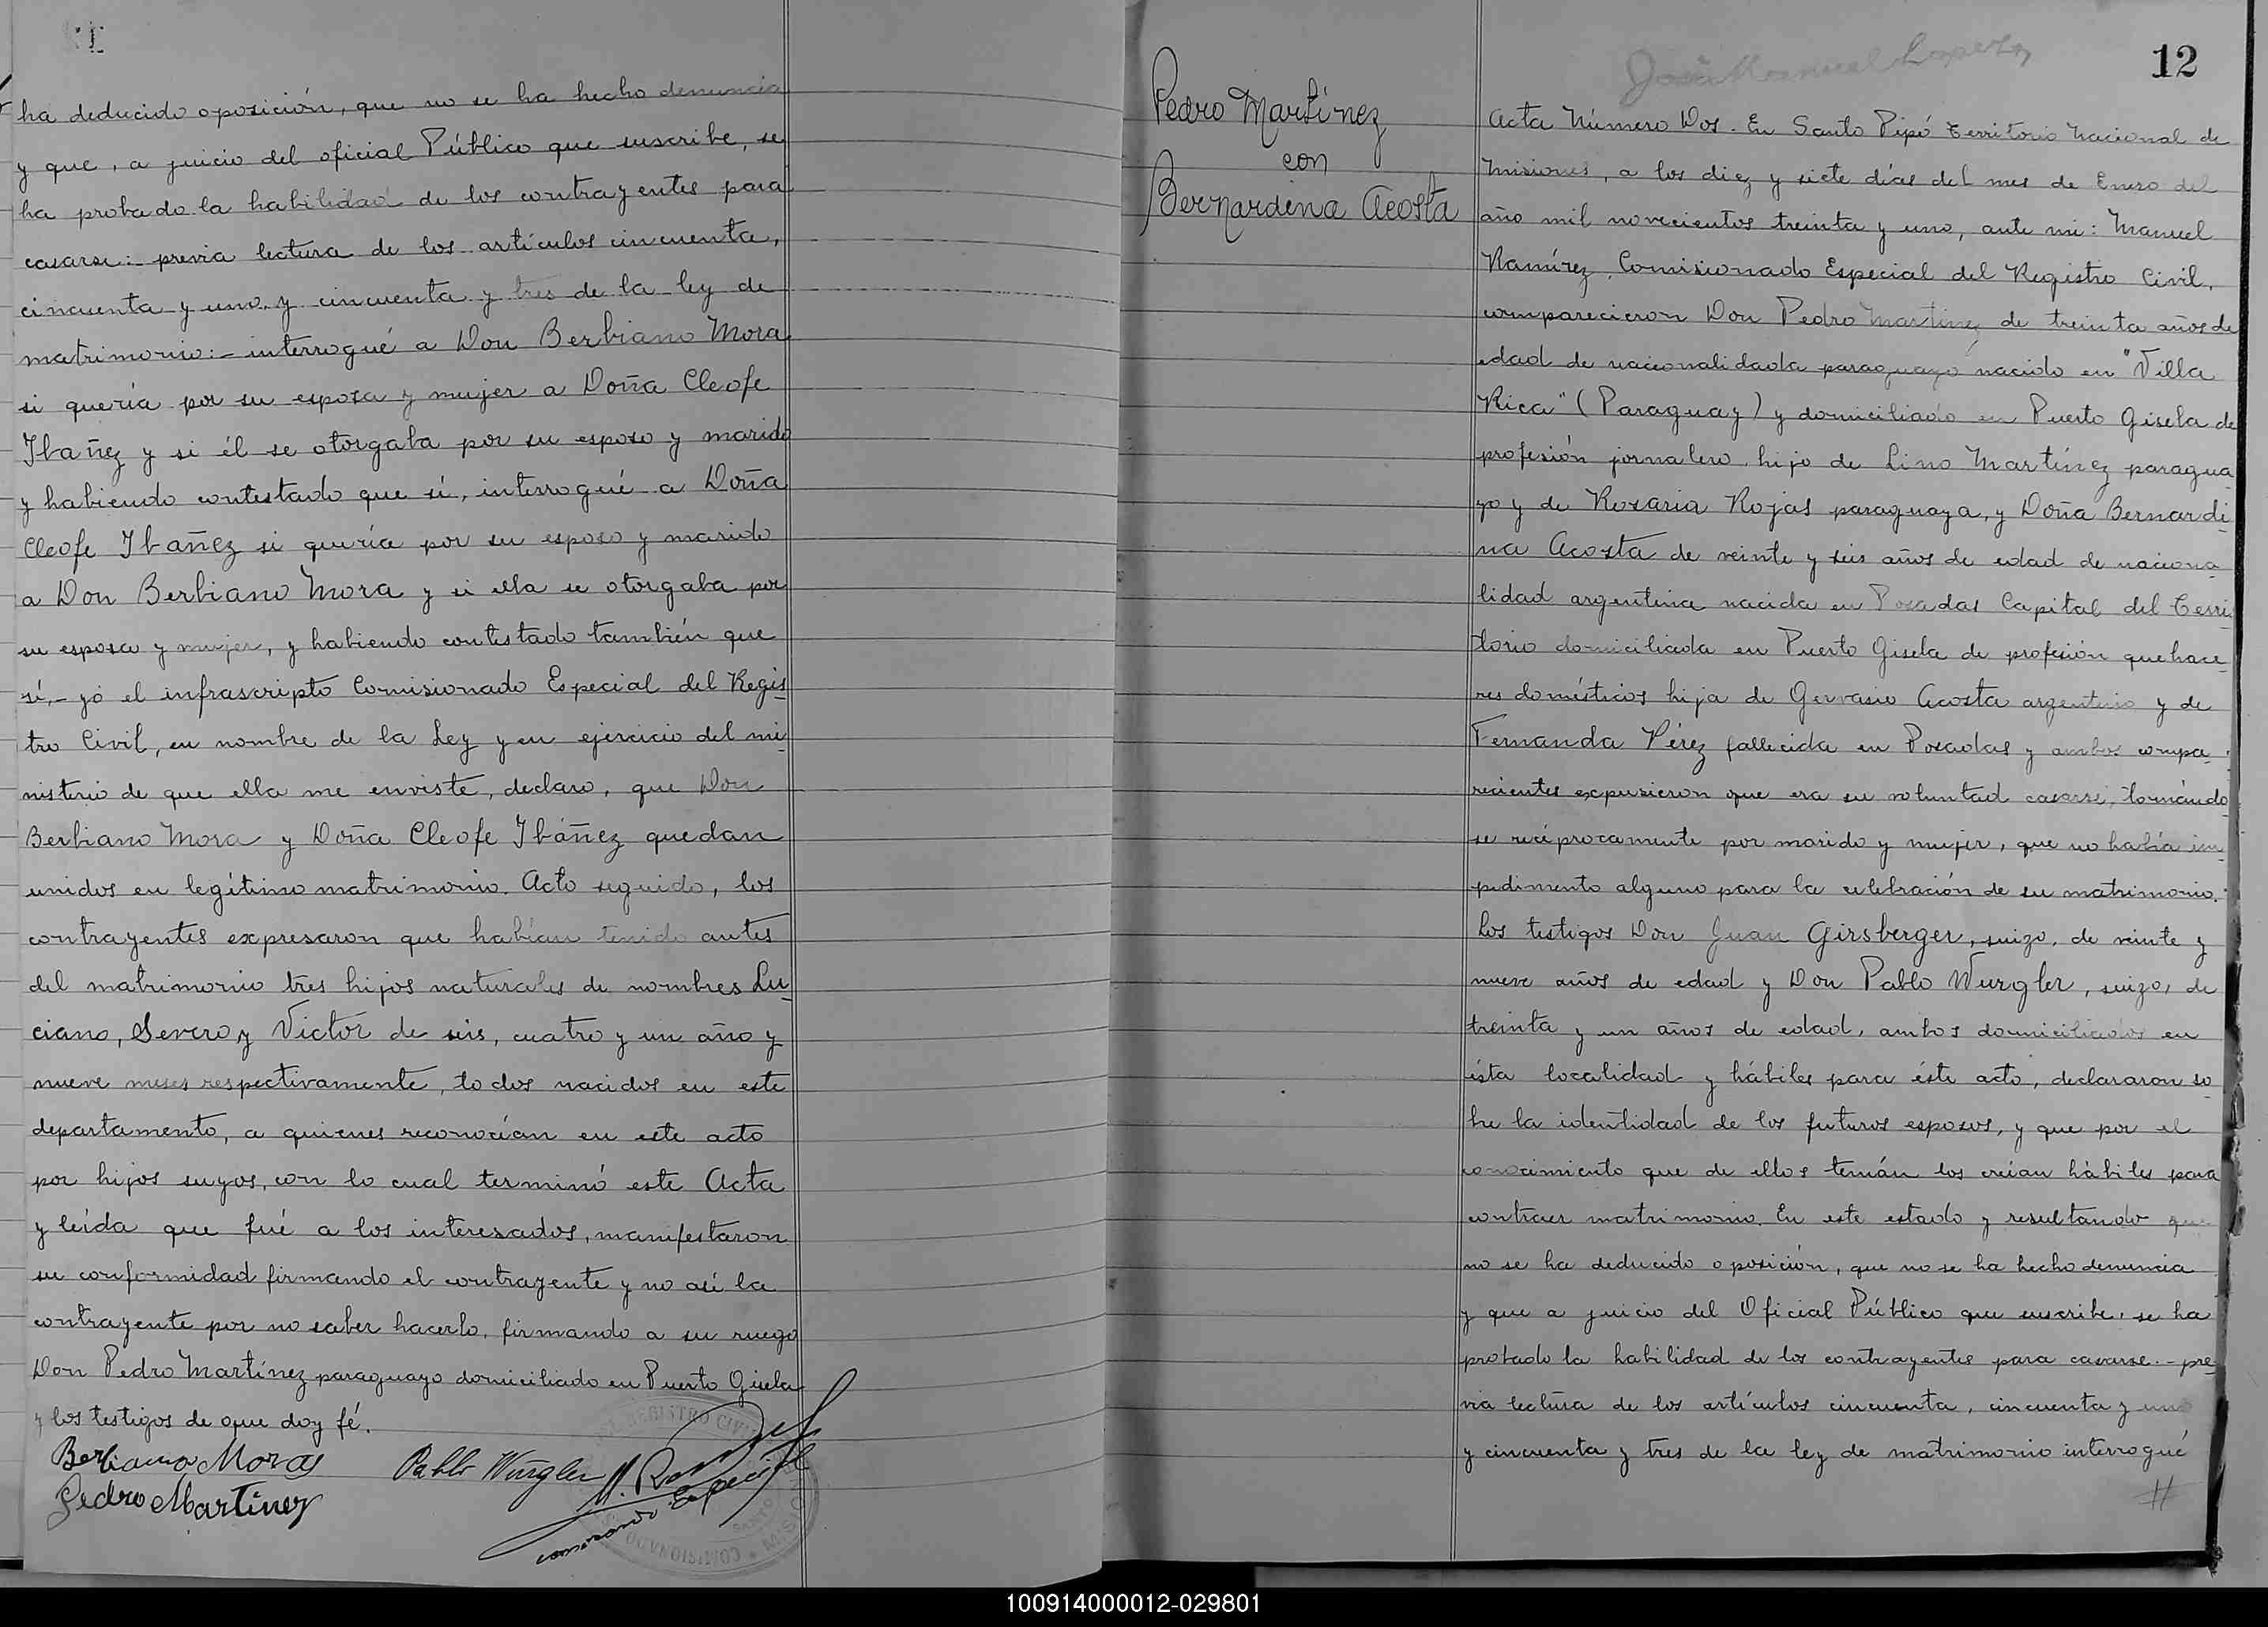 ha deducido oposición, que no se ha hecho denuncia
y que, a juicio del oficial Público que suscribe, se
ha probado la habilidad de los contrayentes para
casarse:- previa lectura de los artículos cincuenta,
cincuenta y uno, y cincuenta y tres de la ley de
matrimonio:- interrogué a Don Berbiano Mora
si quería por su esposa y mujer a Doña Cleofe
Ibañez y si él se otorgaba por su esposo y marido
y habiendo contestado que sí, interrogué a Doña
Cleofe Ibañez si quería por su esposo y marido
a Don Berbiano Mora y si ella se otorgaba por
su esposa y mujer, y habiendo contestado también que
sí.- yó el infrascripto Comisionado Especial del Regis
tro Civil, en nombre de la Ley y en ejercicio del mi
nisterio de que ella me enviste, declaro, que Don
Berbiano Mora y Doña Cleofe Ibáñez quedan
unidos en legítimo matrimonio. Acto seguido, los
contrayentes expresaron que habían tenido antes
del matrimonio tres hijos naturales de nombres Lu
ciano, Severo, y Victor de seis, cuatro y un año y
nueve meses respectivamente, todos nacidos en este
departamento, a quienes reconocían en este acto
por hijos suyos, con lo cual terminó este Acta
y leída que fué a los interesados, manifestaron
su conformidad firmando el contrayente y no así la
contrayente por no saber hacerlo, firmando a su ruego
Don Pedro Martínez paraguayo domiciliado en Puerto Gisela
y los testigos de que doy fé.
Berbiano Mora
Pablo Würgler
Pedro Martinez
REGISTRO CIVIL
COMISIONADO
12
José Manuel Lopez
Pedro Martínez
con
Bernardina Acosta
Acta Número Dos. En Santo Pipó Territorio Nacional de
Misiones, a los diez y siete días del mes de Enero del
año mil novecientos treinta y uno, ante mi: Manuel
Ramírez, Comisionado Especial del Registro Civil,
comparecieron Don Pedro Martínez de treinta años de
edad de nacionalidada paraguayo nacido en "Villa
Rica" (Paraguay) y domiciliado en Puerto Gisela de
profesión jornalero hijo de Lino Martínez paragua
yo y de Rosaria Rojas paraguaya, y Doña Bernardi
na Acosta de veinte y seis años de edad de naciona
lidad argentina nacida en Posadas Capital del Terri
torio domiciliada en Puerto Gisela de profesión quehace
res domésticos hija de Gervasio Acosta argentino y de
Fernanda Pérez fallecida en Posadas y ambos compa
recientes expusieron que era su voluntad casarse, tomándo
se recíprocamente por marido y mujer, que no había im
pedimento alguno para la celebración de su matrimonio.
Los testigos Don Juan Girsberger, suizo, de veinte y
nueve años de edad y Don Pablo Wurgler, suizo, de
treinta y un años de edad, ambos domiciliados en
ésta localidad y hábiles para éste acto, declararon so
bre la identidad de los futuros esposos, y que por el
conocimiento que de ellos tenían los creían hábiles para
contraer matrimonio. En este estado y resultando que
no se ha deducido oposición, que no se ha hecho denuncia
y que a juicio del Oficial Público que suscribe, se ha
probado la habilidad de los contrayentes para casarse.- pre
via lectura de los artículos cincuenta, cincuenta y uno
y cincuenta y tres de la ley de matrimonio interrogué
100914000012-029801